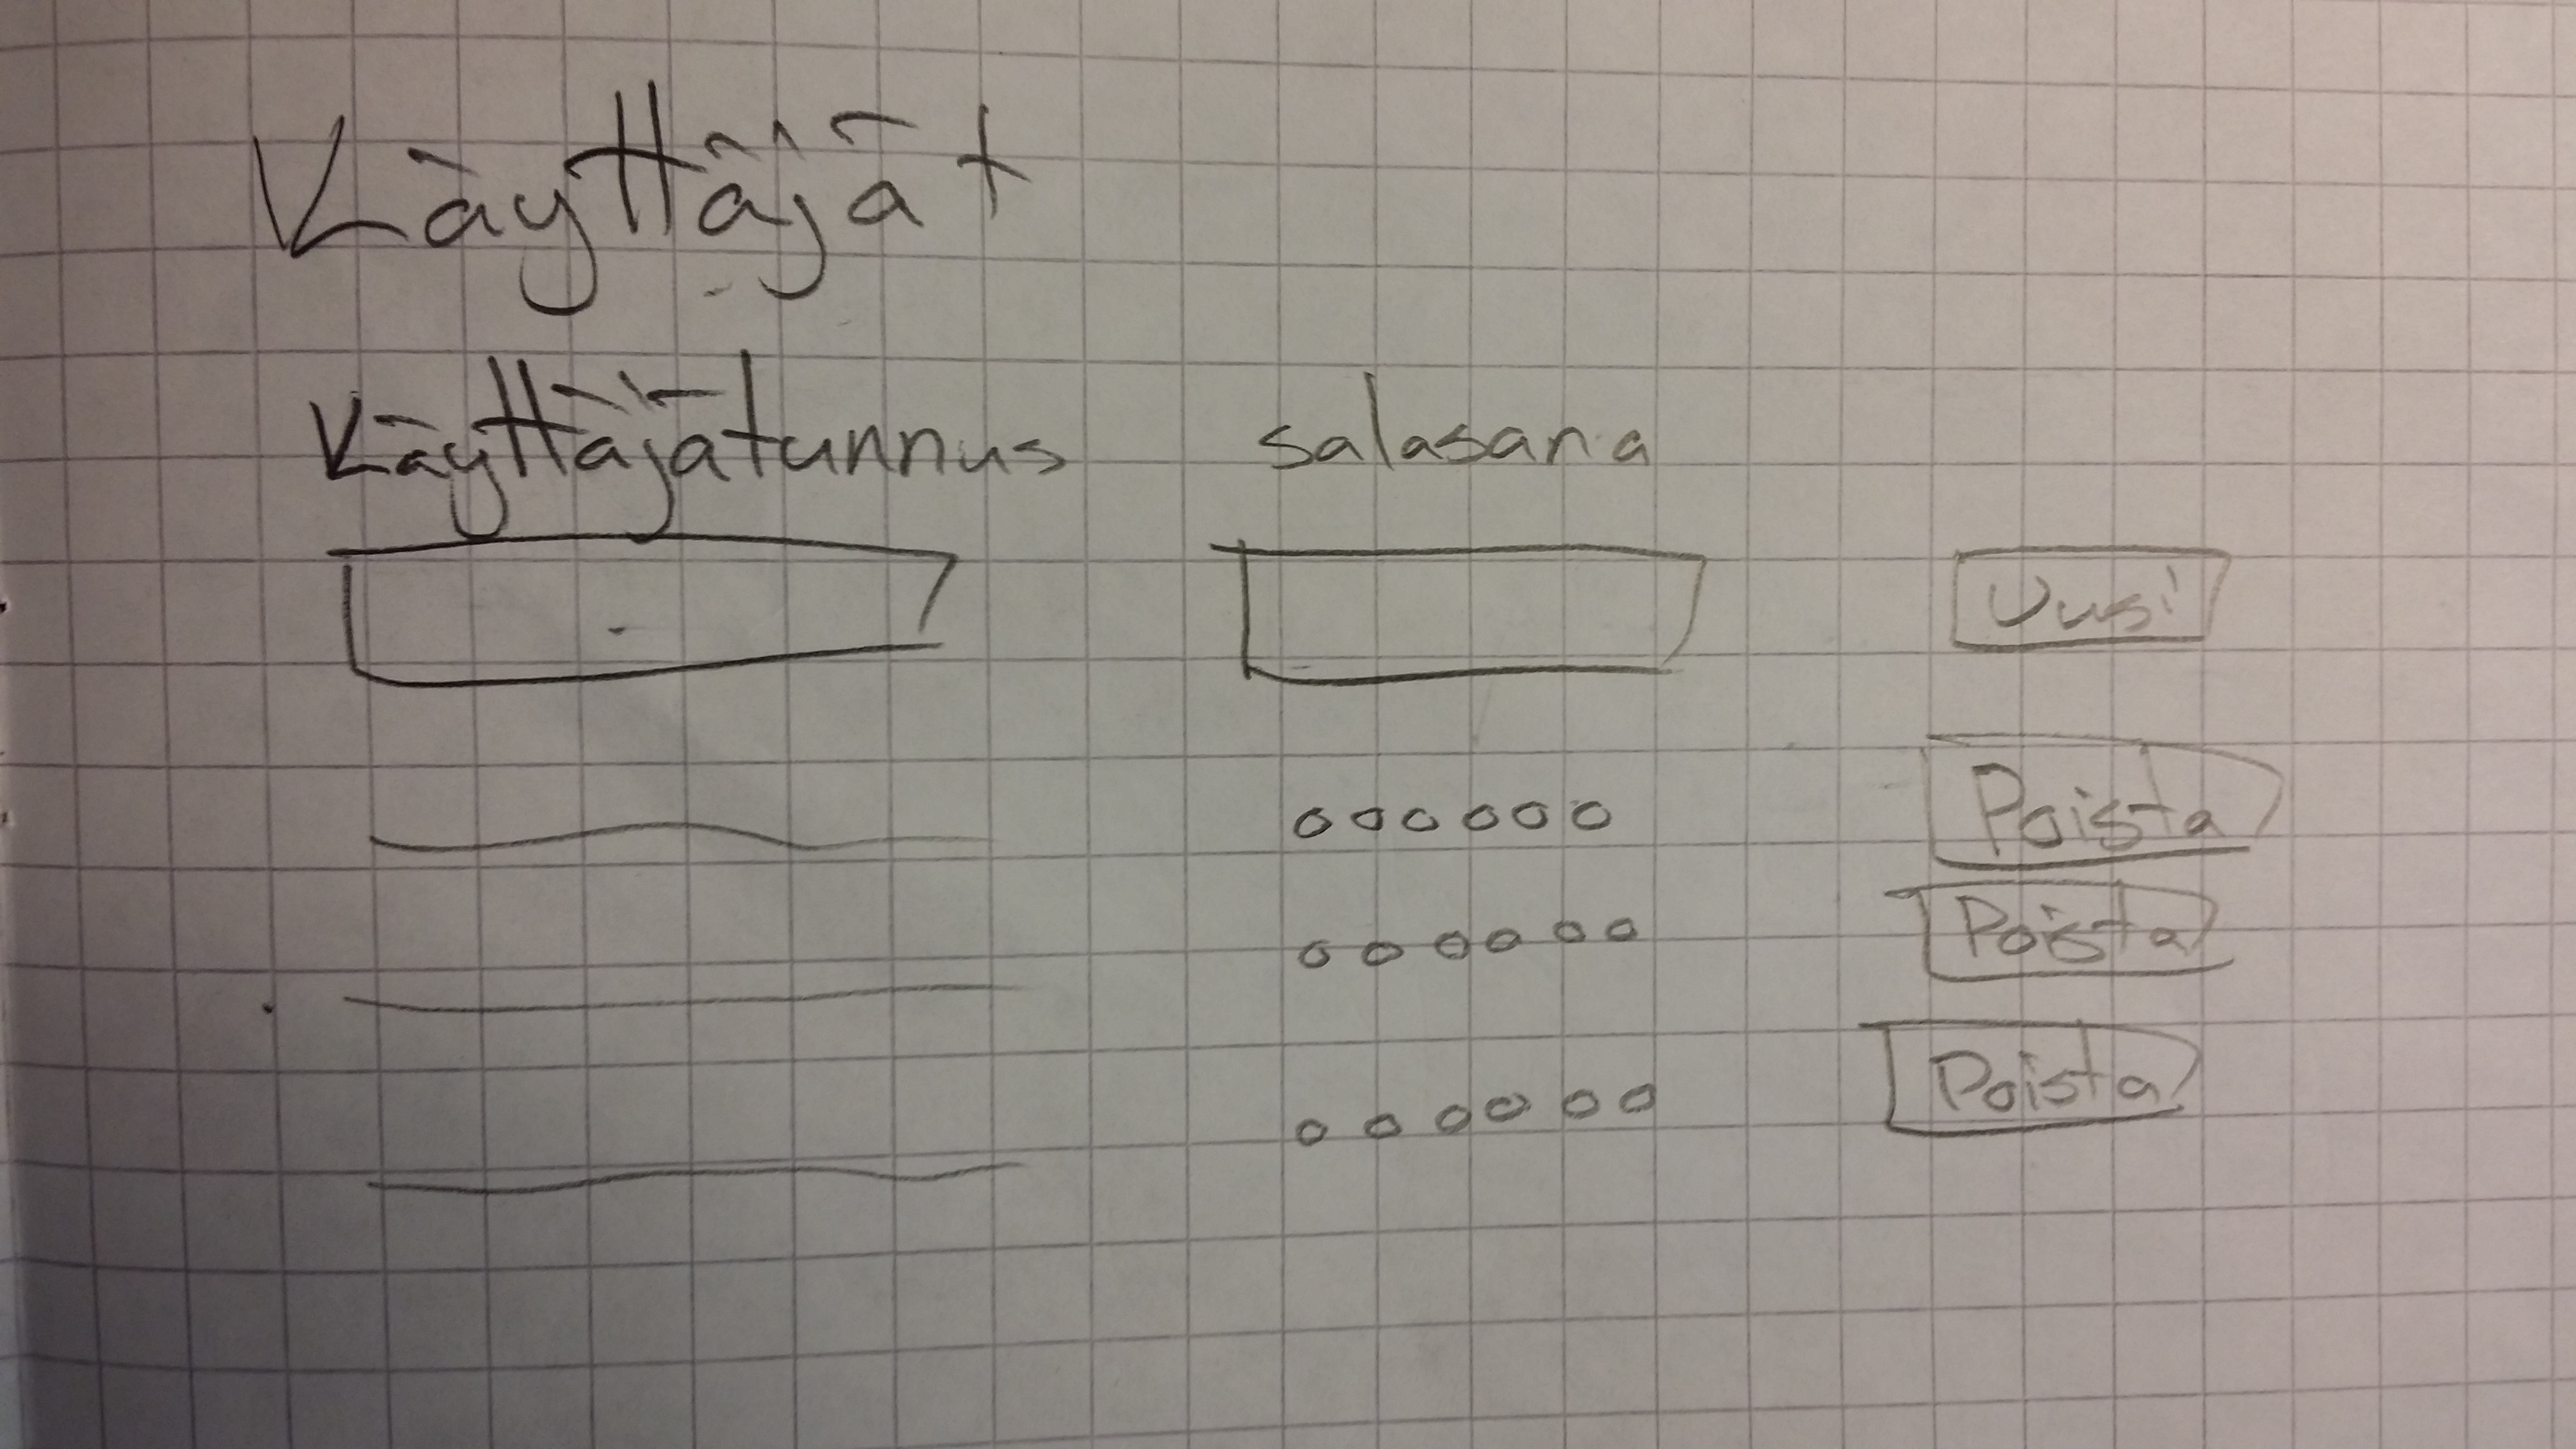 Käyttäjät
Käyttäjätunnus salasana
Uusi
oooooo Poista
oooooo Poista
oooooo Poista